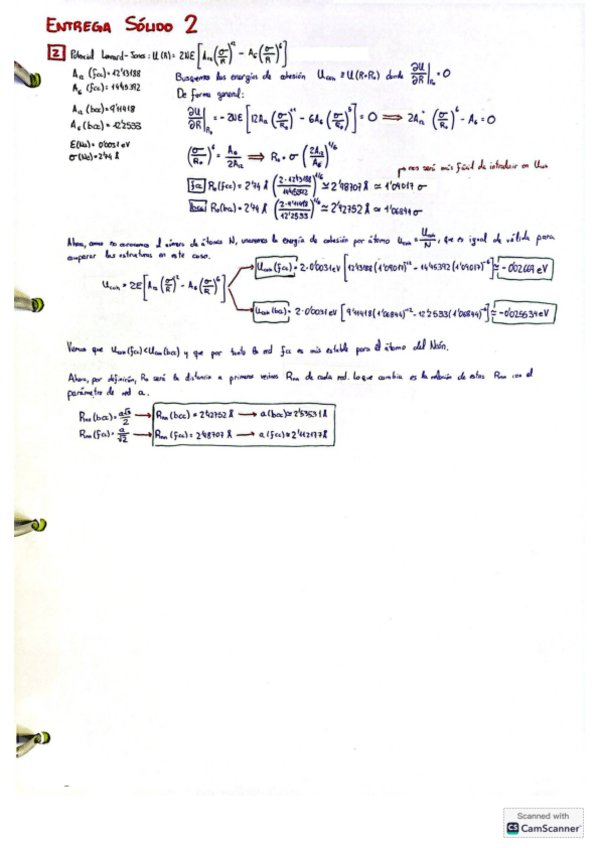 ENTREGA SÓLIDO 2
2 Potencial Lennard-Jones: U(R) = 2Nε[A₁₂(σ/R)¹² - A₆(σ/R)⁶]
A₁₂ (fcc) = 12'13188
A₆ (fcc) = 14'45392
A₁₂ (bcc) = 9'11418
A₆ (bcc) = 12'2533
ε(Ne) = 0'0031 eV
σ(Ne) = 2'74 Å
Buscamos las energías de cohesión U_coh = U(R=R₀) donde ∂U/∂R|_R₀ = 0
De forma general:
∂U/∂R|_R₀ = -2Nε[12A₁₂(σ/R₀)¹¹ - 6A₆(σ/R₀)⁵] = 0 ⟹ 2A₁₂(σ/R₀)⁶ - A₆ = 0
(σ/R₀)⁶ = A₆/2A₁₂ ⟹ R₀ = σ(2A₁₂/A₆)^1/6
nos será más fácil de introducir en U_coh
fcc R₀(fcc) = 2'74 Å (2·12'13188/14'45392)^1/6 ≃ 2'98707 Å ≃ 1'09017 σ
bcc R₀(bcc) = 2'74 Å (2·9'11418/12'2533)^1/6 ≃ 2'92752 Å ≃ 1'06844 σ
Ahora, como no conocemos el número de átomos N, usaremos la energía de cohesión por átomo u_coh = U_coh/N, que es igual de válida para
comparar las estructuras en este caso.
u_coh = 2ε[A₁₂(σ/R)¹² - A₆(σ/R)⁶]
u_coh (fcc) = 2·0'0031 eV [12'13188(1'09017)⁻¹² - 14'45392(1'09017)⁻⁶] ≃ -0'02669 eV
u_coh (bcc) = 2·0'0031 eV [9'11418(1'06844)⁻¹² - 12'2533(1'06844)⁻⁶] ≃ -0'025534 eV
Vemos que u_coh(fcc) < u_coh(bcc) y que por tanto la red fcc es más estable para el átomo del Neón.
Ahora, por definición, R₀ será la distancia a primeros vecinos R_nn de cada red. Lo que cambia es la relación de estas R_nn con el
parámetro de red a.
R_nn(bcc) = a√3/2 → R_nn (bcc) = 2'92752 Å → a(bcc) =
R_nn (fcc) = a/√2 → R_nn (fcc) = 2'98707 Å → a(fcc) =
Scanned with
CS CamScanner